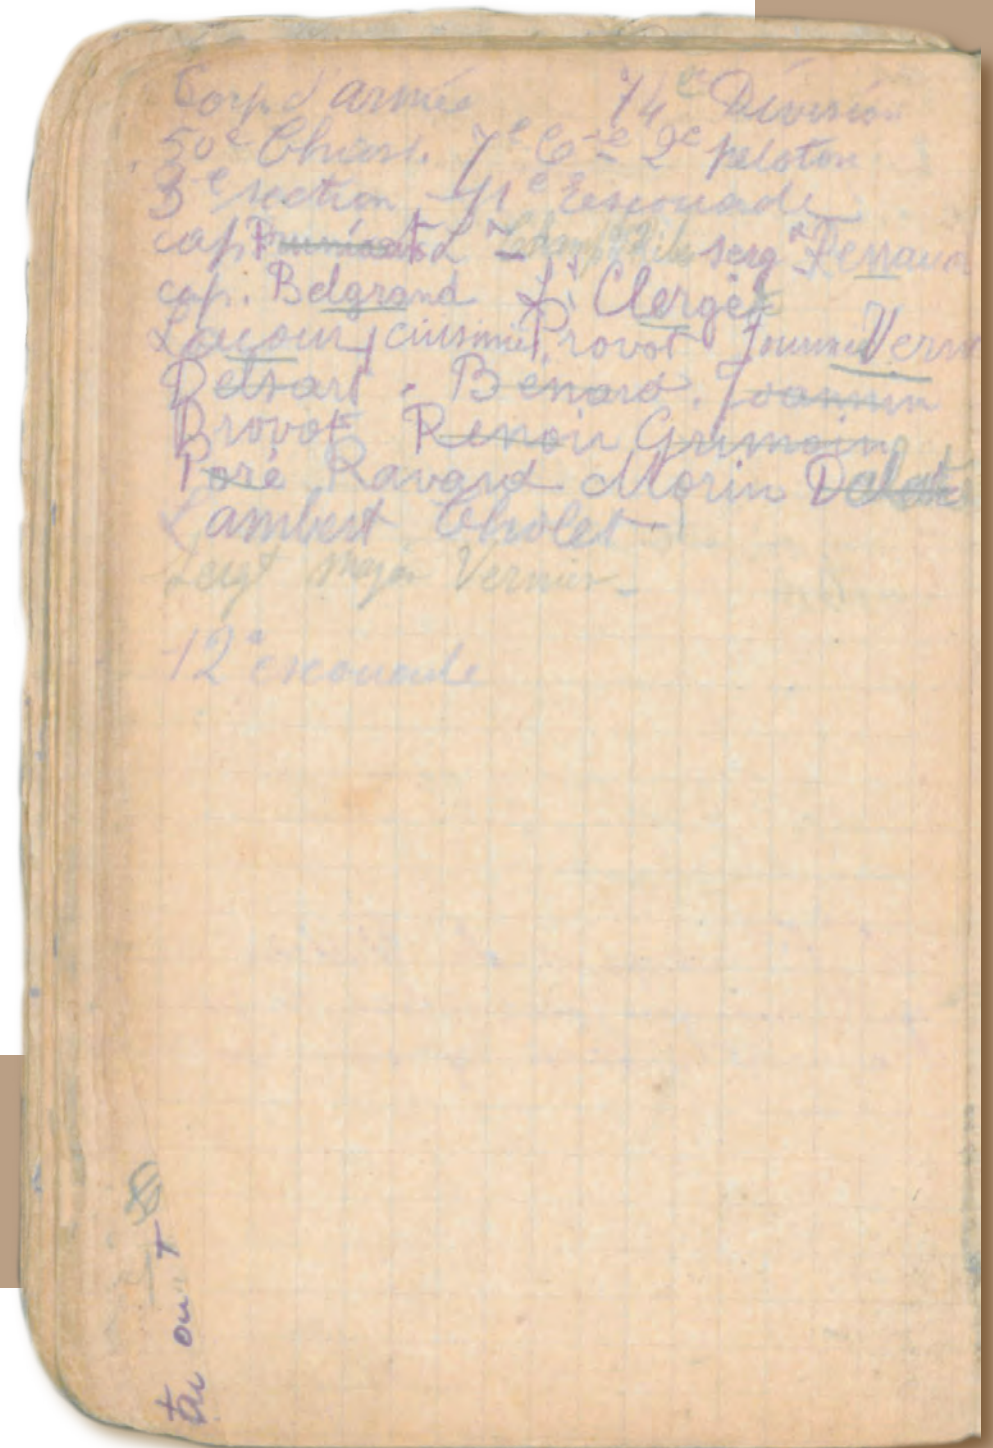 Corp d'armée 74e Division
50e Chass. 7e Cie 2e peloton
3e section 11e Escouade
cap serg Renaud
cap. Belgrand Lt Clerget
Lacour cuisinier Provot Vern
Delsart . Benard . Joannin
Provot Renoir Grimoin
Poré Ravard Morin
Lambert Cholet .
Sergt Major Vernier -
12e escouade
tu ou +